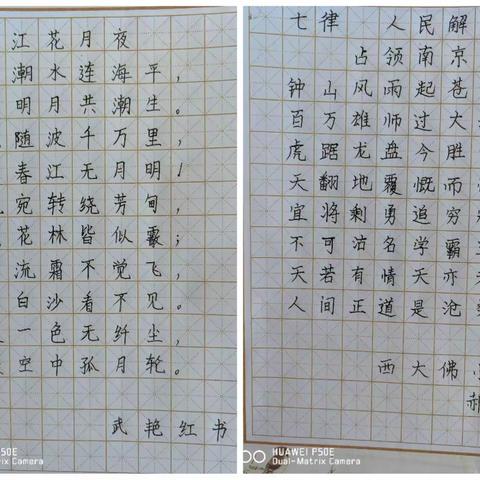 江花月夜
潮水连海平，
明月共潮生。
随波千万里，
春江无月明！
宛转绕芳甸，
花林皆似霰；
流霜不觉飞，
白沙看不见。
一色无纤尘，
空中孤月轮。
武艳红书
HUAWEI P50E
Dual-Matrix Camera
七律 人民解
占领南京
钟山风雨起苍
百万雄师过大
虎踞龙盘今胜
天翻地覆慨而
宜将剩勇追穷
不可沽名学霸
天若有情天亦
人间正道是沧
西大佛
郝
HUAWEI P50E
Dual-Matrix Camera